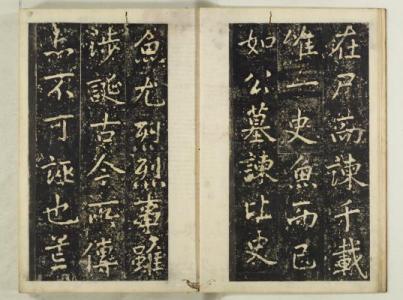 在尸而諫千載
唯一史魚而已
如公墓諫比史
魚尤烈烈事雖
涉誕古今所傳
亦不可誣也